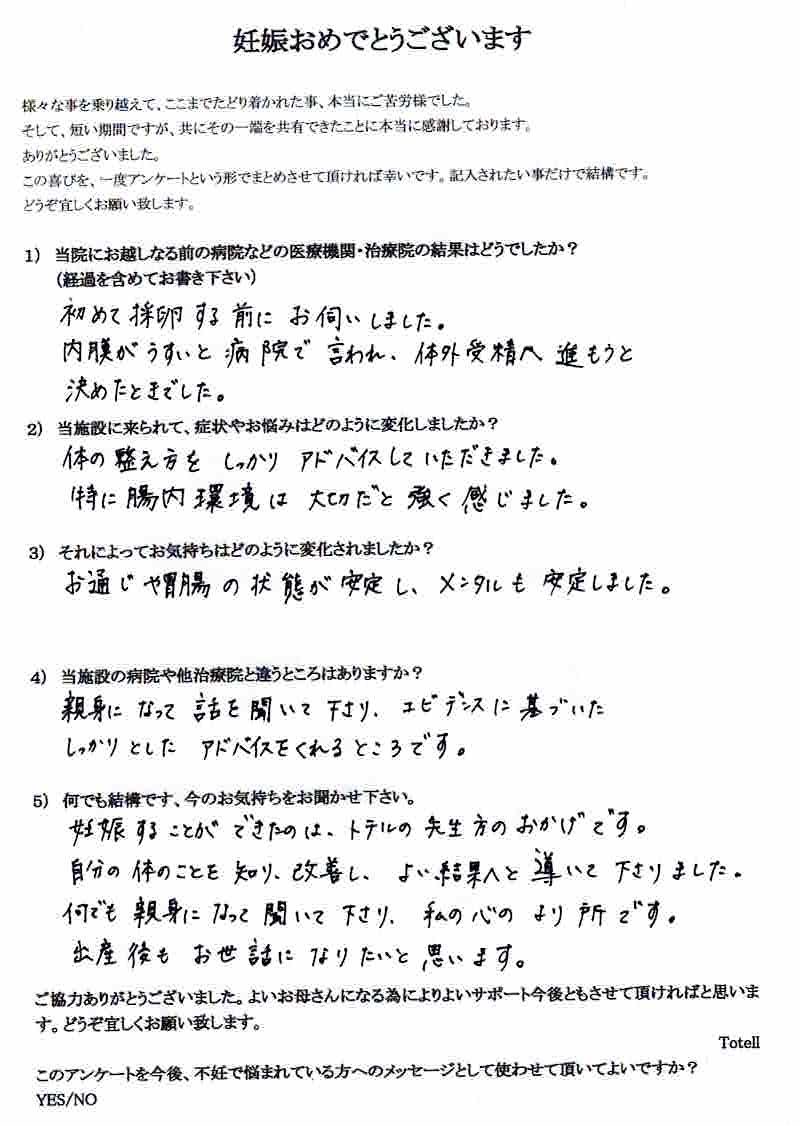 妊娠おめでとうございます
様々な事を乗り越えて、ここまでたどり着かれた事、本当にご苦労様でした。
そして、短い期間ですが、共にその一端を共有できたことに本当に感謝しております。
ありがとうございました。
この喜びを、一度アンケートという形でまとめさせて頂ければ幸いです。記入されたい事だけで結構です。
どうぞ宜しくお願い致します。
1) 当院にお越しなる前の病院などの医療機関・治療院の結果はどうでしたか?
(経過を含めてお書き下さい)
初めて採卵する前にお伺いしました。
内膜がうすいと病院で言われ、体外受精へ進もうと
決めたときでした。
2) 当施設に来られて、症状やお悩みはどのように変化しましたか?
体の整え方をしっかりアドバイスしていただきました。
特に腸内環境は大切だと強く感じました。
3) それによってお気持ちはどのように変化されましたか?
お通じや胃腸の状態が安定し、メンタルも安定しました。
4) 当施設の病院や他治療院と違うところはありますか?
親身になって話を聞いて下さり、エビデンスに基づいた
しっかりとしたアドバイスをくれるところです。
5) 何でも結構です、今のお気持ちをお聞かせ下さい。
妊娠することができたのは、トテルの先生方のおかげです。
自分の体のことを知り、改善し、よい結果へと導いて下さりました。
何でも親身になって聞いて下さり、私の心のより所です。
出産後もお世話になりたいと思います。
ご協力ありがとうございました。よいお母さんになる為によりよいサポート今後ともさせて頂ければと思いま
す。どうぞ宜しくお願い致します。
Totell
このアンケートを今後、不妊で悩まれている方へのメッセージとして使わせて頂いてよいですか?
YES/NO